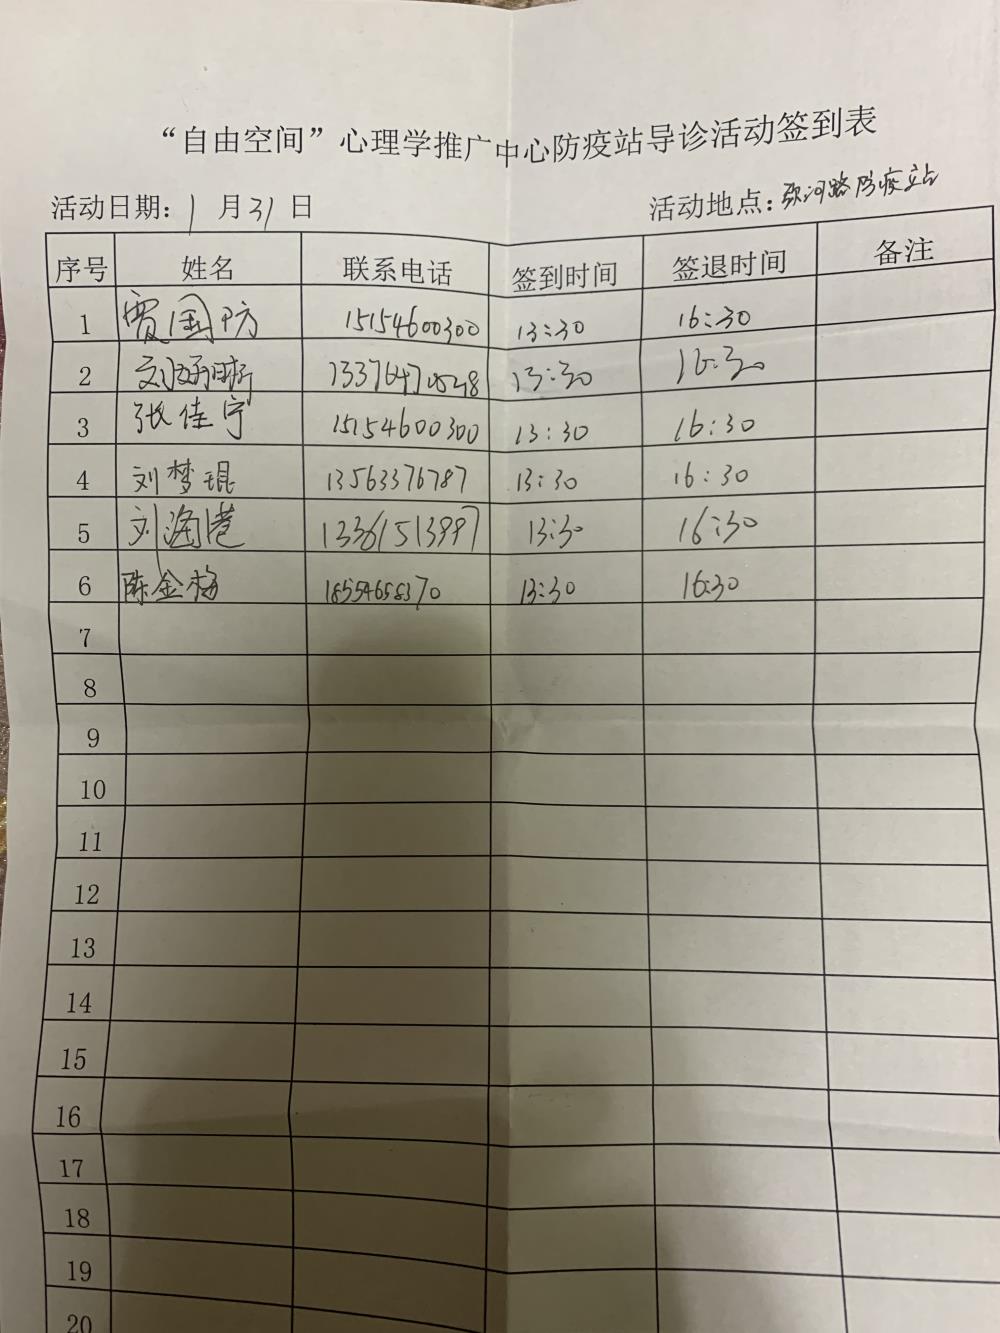 “自由空间”心理学推广中心防疫站导诊活动签到表
活动日期：1月31日 活动地点：弥河路防疫站
序号 姓名 联系电话 签到时间 签退时间 备注
1 贾国防 15154600300 13:30 16:30
2 刘 13:30 16:30
3 张佳宁 15154600300 13:30 16:30
4 刘梦琨 13563376787 13:30 16:30
5 刘港 13361513997 13:30 16:30
6 陈金梅 18554658370 13:30 16:30
7
8
9
10
11
12
13
14
15
16
17
18
19
20